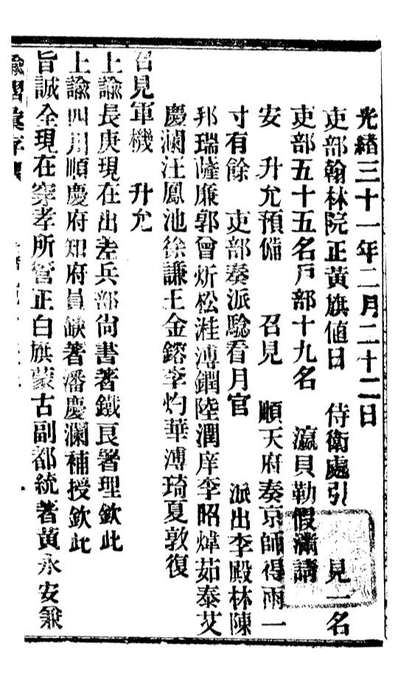 光緒三十一年二月二十二日
吏部翰林院正黃旗值日　侍衛處引　見一名
吏部五十五名戶部十九名　瀛貝勒假滿請
安　升允預備　召見　順天府奏京師得雨一
寸有餘　吏部奏派驗看月官　派出李殿林陳
邦瑞薩廉郭曾炘松溎溥鐗陸潤庠李昭煒茹泰艾
慶瀾汪鳳池徐謙王金鎔李灼華溥琦夏敦復
召見軍機　升允
上諭長庚現在出差兵部尚書著鐵良署理欽此
上諭四川順慶府知府員缺著潘慶瀾補授欽此
旨誠全現在穿孝所管正白旗蒙古副都統著黃永安兼
諭摺彙存